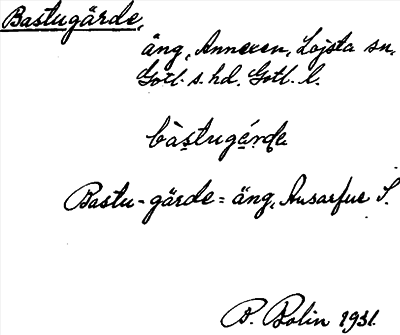 Bastugärde,
äng, Annexen, Lojsta sn.
Gotl. s. hd. Gotl. l.
bàstugárde
Bastu-gärde = äng, Ansarfve S.
B. Bolin 1931.